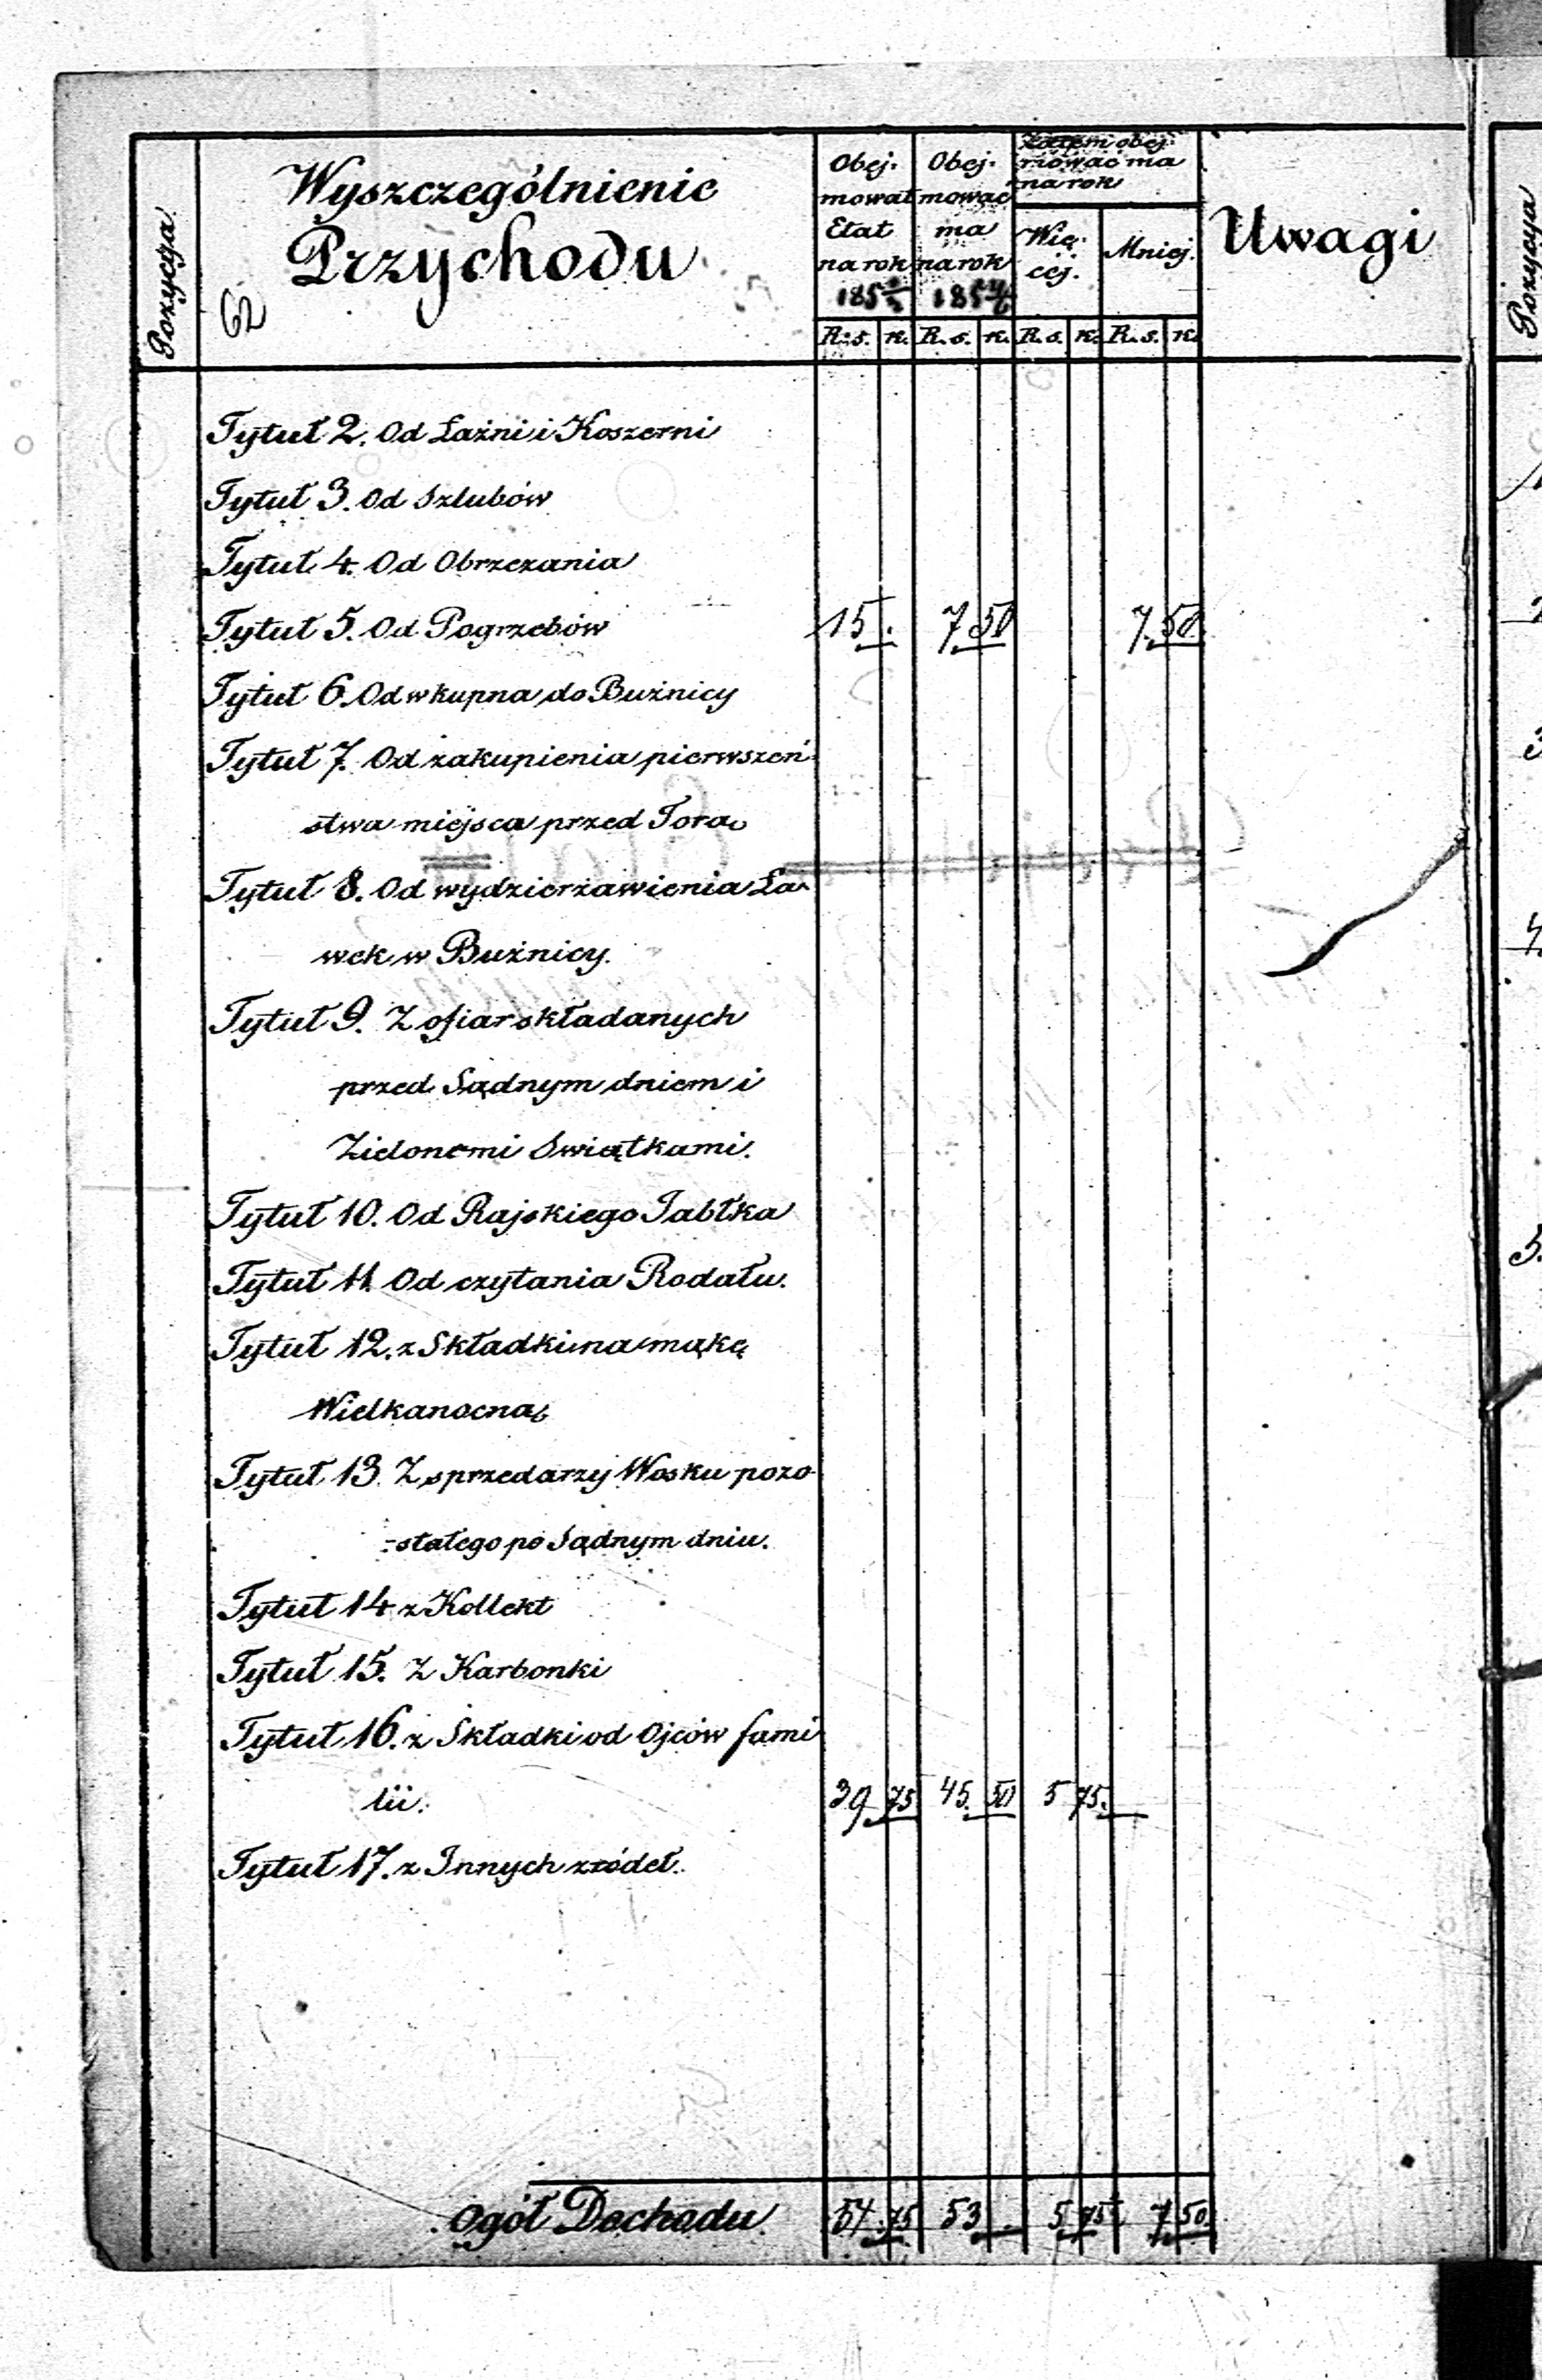 Pozycya
62
Wyszczególnienie
Przychodu
Obej-
mował
Etat
na rok
185
Obej-
mować
ma
na rok
185
Zatem obej-
mować ma
na rok
Wię-
cej.
Mniej.
Uwagi
R. s. K. R. s. K. R. s. K. R. s. K.
Tytuł 2. Od Łaźni i Koszerni
Tytuł 3. Od Szlubów
Tytuł 4. Od Obrzezania
Tytuł 5. Od Pogrzebów 15 . 7 50 7. 50
Tytuł 6. Od wkupna do Bużnicy
Tytuł 7. Od zakupienia pierwszeń-
stwa miejsca przed Torą
Tytuł 8. Od wydzierzawienia Ła-
wek w Bużnicy.
Tytuł 9. Z ofiar składanych
przed Sądnym dniem i
Zielonemi Swiątkami.
Tytuł 10. Od Rajskiego Jabłka
Tytuł 11. Od czytania Rodału.
Tytuł 12. z Składki na mąkę
Wielkanocną
Tytuł 13. Z sprzedarzy Wosku pozo-
-stałego po Sądnym dniu.
Tytuł 14 z Kollekt
Tytuł 15. Z Karbonki
Tytuł 16. z Składki od Ojców fami
lii. 39 75 45. 50 5 75.
Tytuł 17. z Innych zródeł.
Ogół Dochodu. 54 75 53 . 5 75 7 50.
Pozycya
2
3
4.
5.